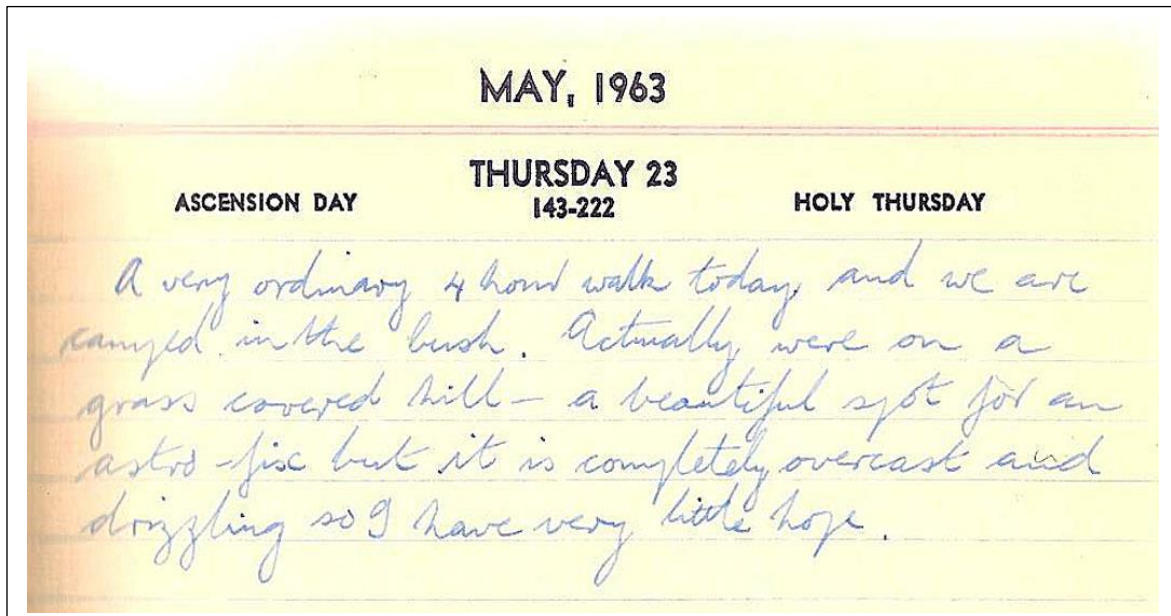 MAY, 1963
THURSDAY 23
ASCENSION DAY 143-222 HOLY THURSDAY
A very ordinary 4 hour walk today and we are
camped in the bush. Actually were on a
grass covered hill - a beautiful spot for an
astro-fix but it is completely overcast and
drizzling so I have very little hope.